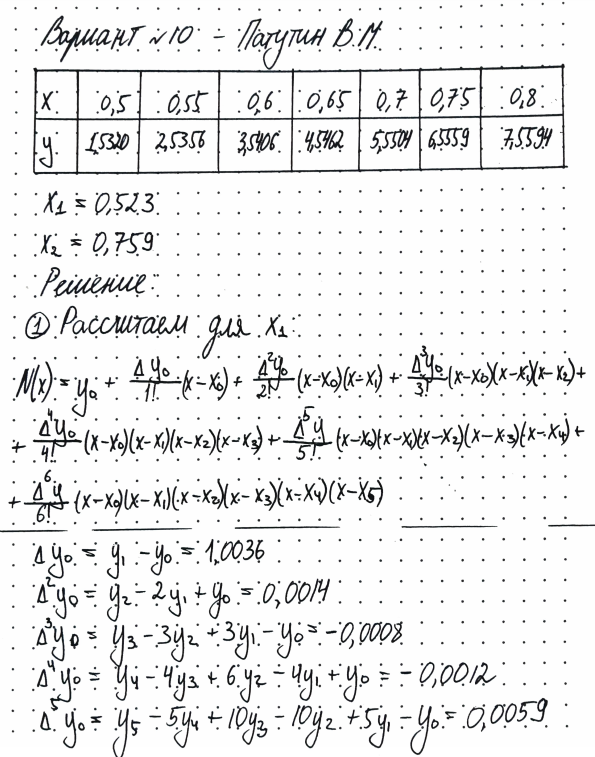 Вариант №10 – Патутин В.М.
x 0,5 0,55 0,6 0,65 0,7 0,75 0,8
y 1,5320 2,5356 3,5406 4,5462 5,5504 6,5559 7,5594
x₁ = 0,523
x₂ = 0,759
Решение:
① Рассчитаем для x₁:
N(x) = y₀ + Δy₀/1! (x–x₀) + Δ²y₀/2! (x–x₀)(x–x₁) + Δ³y₀/3! (x–x₀)(x–x₁)(x–x₂)+
+ Δ⁴y₀/4! (x–x₀)(x–x₁)(x–x₂)(x–x₃) + Δ⁵y/5! (x–x₀)(x–x₁)(x–x₂)(x–x₃)(x–x₄)+
+ Δ⁶y/6! (x–x₀)(x–x₁)(x–x₂)(x–x₃)(x–x₄)(x–x₅)
Δy₀ = y₁ – y₀ = 1,0036
Δ²y₀ = y₂ – 2y₁ + y₀ = 0,0014
Δ³y₀ = y₃ – 3y₂ + 3y₁ – y₀ = –0,0008
Δ⁴y₀ = y₄ – 4y₃ + 6y₂ – 4y₁ + y₀ = –0,0012
Δ⁵y₀ = y₅ – 5y₄ + 10y₃ – 10y₂ + 5y₁ – y₀ = 0,0059